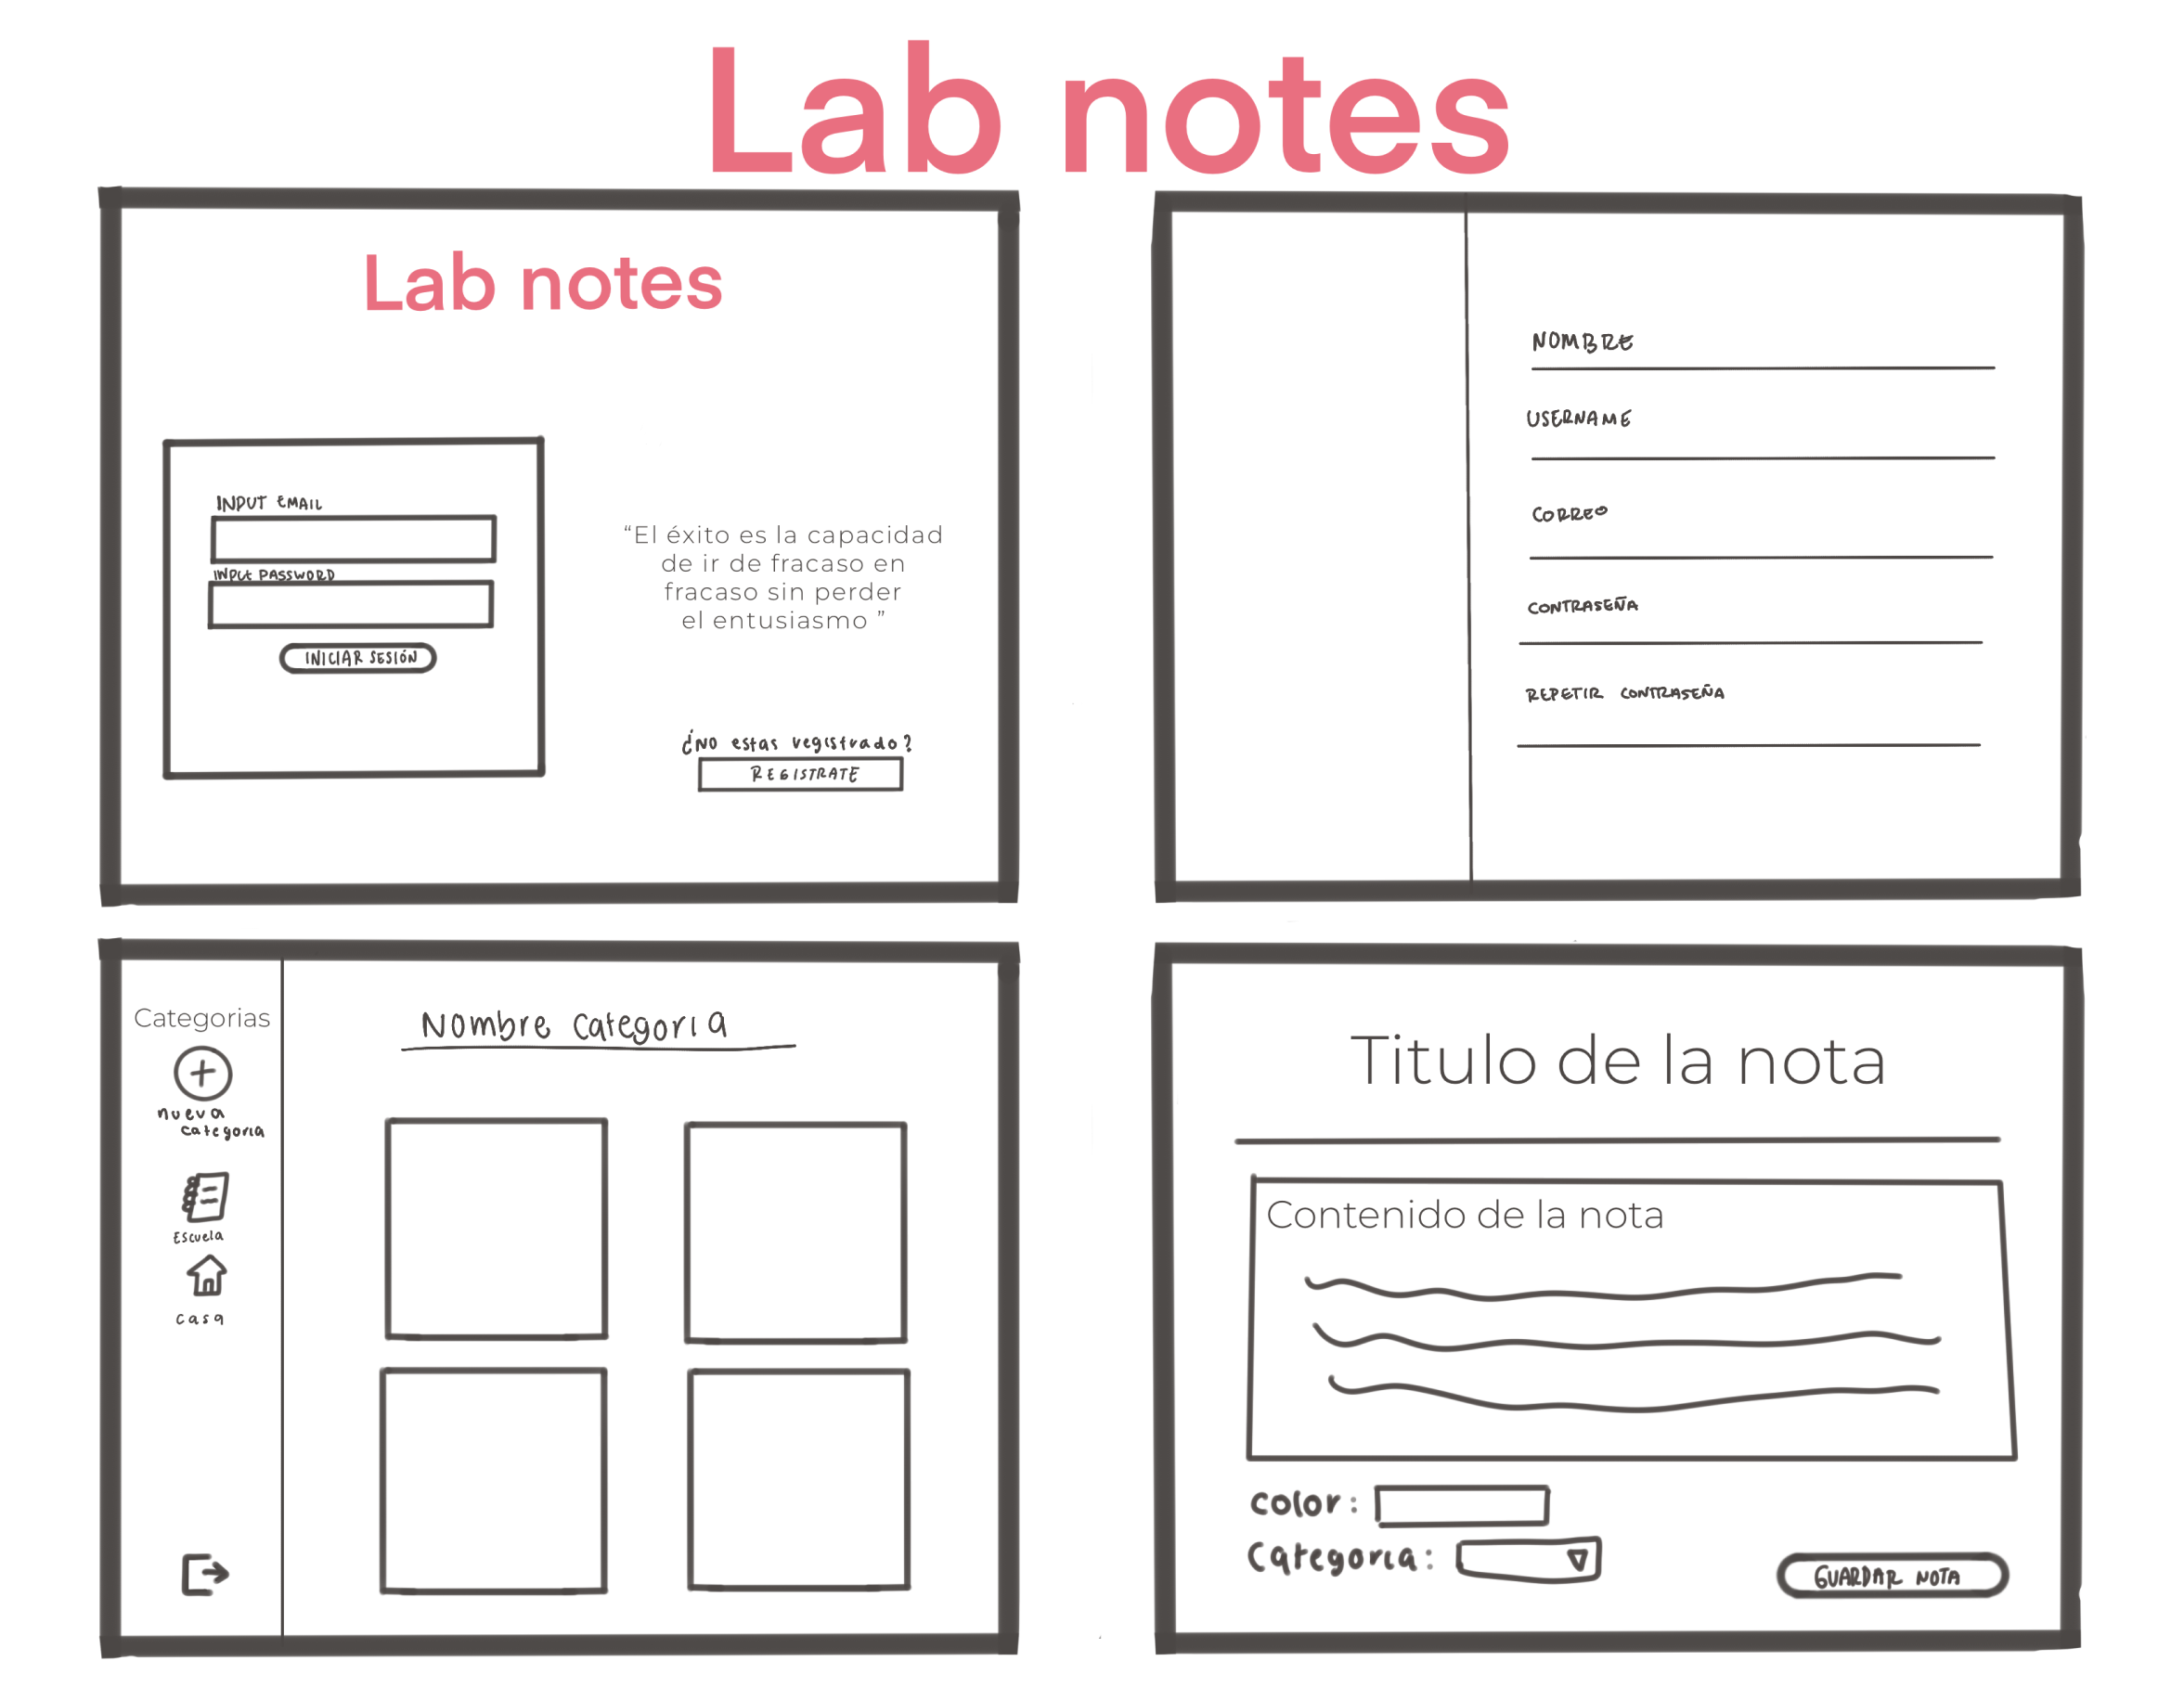 Lab notes
Lab notes
INPUT EMAIL
INPUT PASSWORD
INICIAR SESIÓN
“El éxito es la capacidad
de ir de fracaso en
fracaso sin perder
el entusiasmo ”
¿NO estas registrado?
REGISTRATE
NOMBRE
USERNAME
CORREO
CONTRASEÑA
REPETIR CONTRASEÑA
Categorias
nueva
categoria
Escuela
casa
Nombre categoria
Titulo de la nota
Contenido de la nota
color:
Categoria:
GUARDAR NOTA